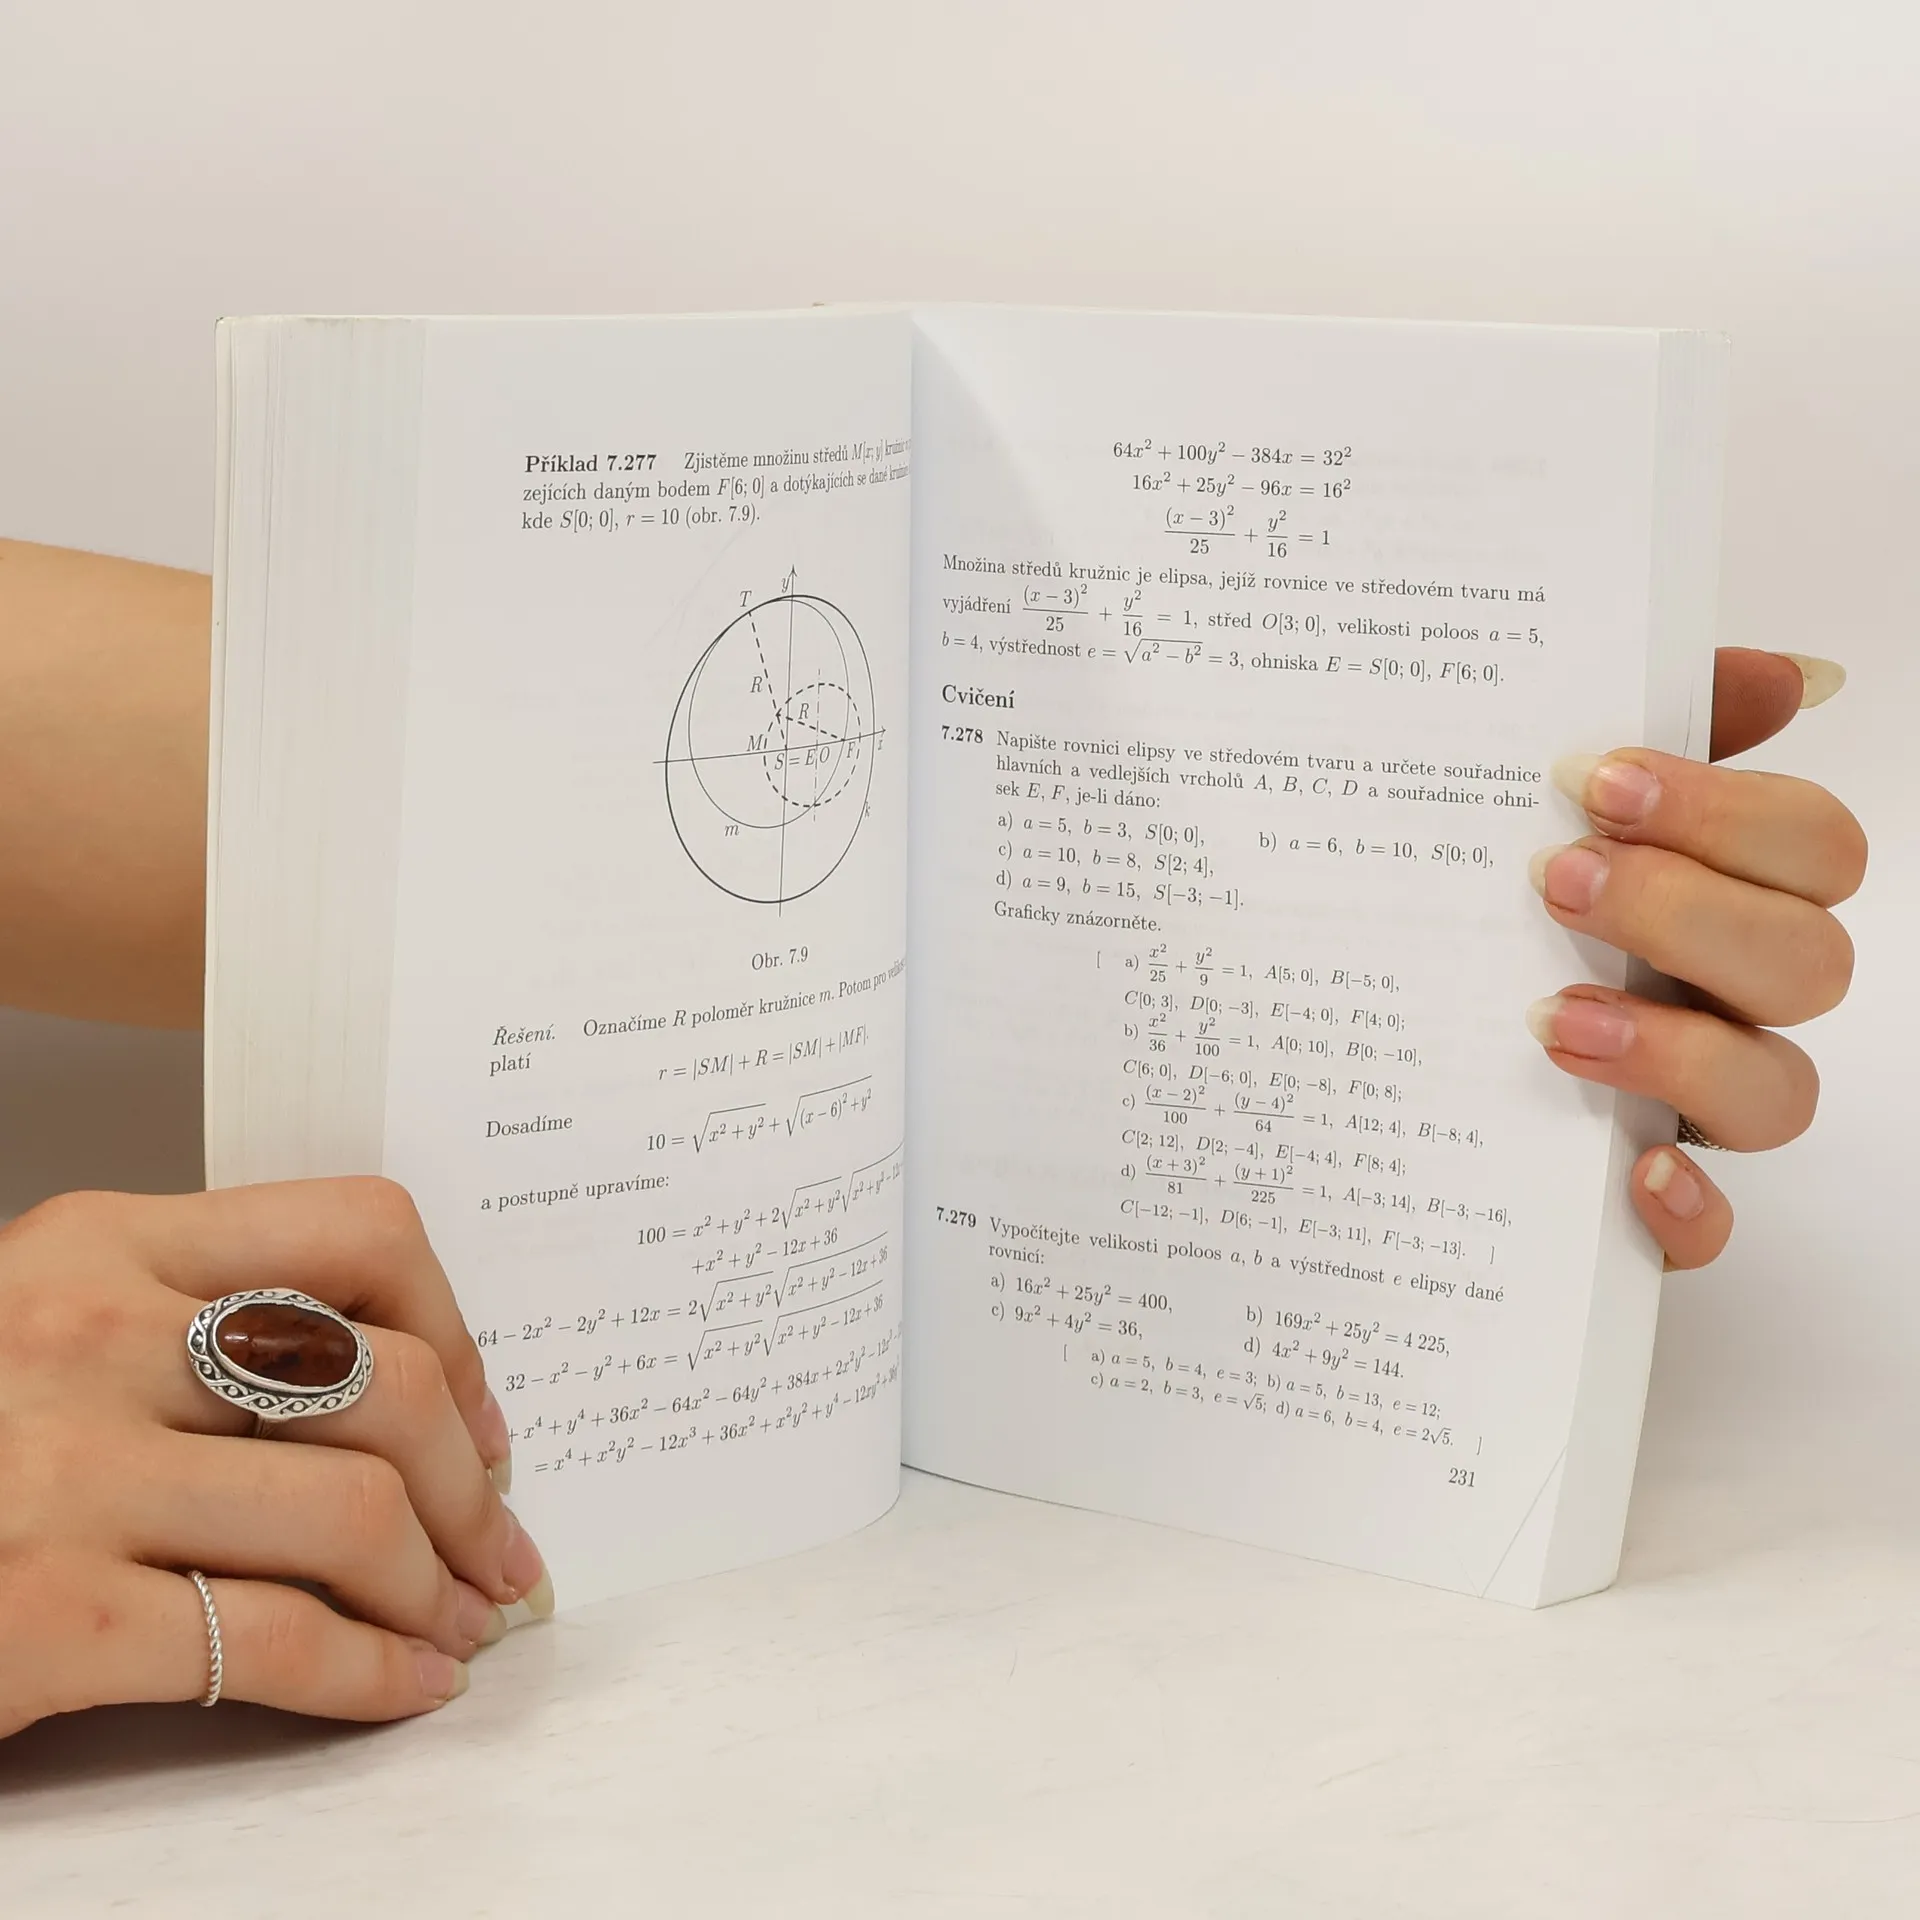 Příklad 7.277 Zjistěme množinu středů M[x; y]
zejících daným bodem F[6; 0] a dotýkajících se dané
kde S[0; 0], r = 10 (obr. 7.9).
y
T
R
R
M
S = E O F x
m k
Obr. 7.9
Řešení. Označíme R poloměr kružnice m. Potom pro
platí
r = |SM| + R = |SM| + |MF|.
Dosadíme
10 = √(x² + y²) + √((x − 6)² + y²)
a postupně upravíme:
100 = x² + y² + 2√(x² + y²)√(x² + y² − 12x
+x² + y² − 12x + 36
64 − 2x² − 2y² + 12x = 2√(x² + y²)√(x² + y² − 12x + 36)
32 − x² − y² + 6x = √(x² + y²)√(x² + y² − 12x + 36)
+ x⁴ + y⁴ + 36x² − 64x² − 64y² + 384x + 2x²y² − 12x³
= x⁴ + x²y² − 12x³ + 36x² + x²y² + y⁴ − 12xy² + 36y²
64x² + 100y² − 384x = 32²
16x² + 25y² − 96x = 16²
(x − 3)²/25 + y²/16 = 1
Množina středů kružnic je elipsa, jejíž rovnice ve středovém tvaru má
vyjádření (x − 3)²/25 + y²/16 = 1, střed O[3; 0], velikosti poloos a = 5,
b = 4, výstřednost e = √(a² − b²) = 3, ohniska E = S[0; 0], F[6; 0].
Cvičení
7.278 Napište rovnici elipsy ve středovém tvaru a určete souřadnice
hlavních a vedlejších vrcholů A, B, C, D a souřadnice ohni-
sek E, F, je-li dáno:
a) a = 5, b = 3, S[0; 0], b) a = 6, b = 10, S[0; 0],
c) a = 10, b = 8, S[2; 4],
d) a = 9, b = 15, S[−3; −1].
Graficky znázorněte.
[ a) x²/25 + y²/9 = 1, A[5; 0], B[−5; 0],
C[0; 3], D[0; −3], E[−4; 0], F[4; 0];
b) x²/36 + y²/100 = 1, A[0; 10], B[0; −10],
C[6; 0], D[−6; 0], E[0; −8], F[0; 8];
c) (x − 2)²/100 + (y − 4)²/64 = 1, A[12; 4], B[−8; 4],
C[2; 12], D[2; −4], E[−4; 4], F[8; 4];
d) (x + 3)²/81 + (y + 1)²/225 = 1, A[−3; 14], B[−3; −16],
C[−12; −1], D[6; −1], E[−3; 11], F[−3; −13]. ]
7.279 Vypočítejte velikosti poloos a, b a výstřednost e elipsy dané
rovnicí:
a) 16x² + 25y² = 400, b) 169x² + 25y² = 4 225,
c) 9x² + 4y² = 36, d) 4x² + 9y² = 144.
[ a) a = 5, b = 4, e = 3; b) a = 5, b = 13, e = 12;
c) a = 2, b = 3, e = √5; d) a = 6, b = 4, e = 2√5. ]
231